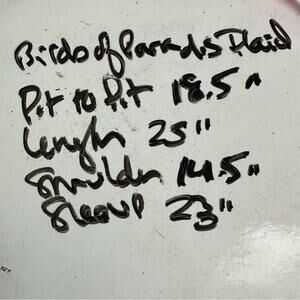 Birds of Paradis Plaid
Pit to Pit 18.5"
Length 25"
Shoulder 14.5"
Sleeve 23"